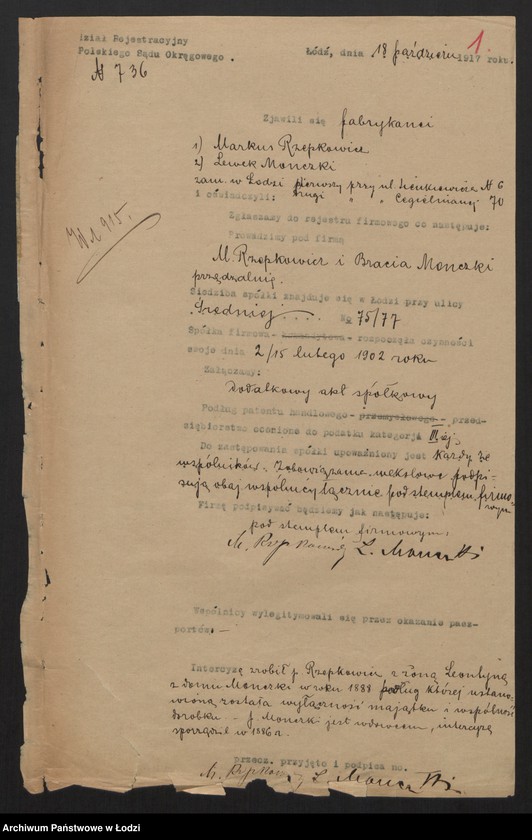 Dział Rejestracyjny
Polskiego Sądu Okręgowego.
№ 736
Łódź, dnia 18 października 1917 roku.
1.
Zjawili się fabrykanci
1) Markus Rzepkowicz
2) Lewek Monczki
zam. w Łodzi pierwszy przy ul. Sienkiewicza № 6
i oświadczyli: drugi " " Cegielnianej 70
Zgłaszamy do rejestru firmowego co następuje:
Prowadzimy pod firmą
M. Rzepkowicz i Bracia Monczki
przędzalnię.
Siedziba spółki znajduje się w Łodzi przy ulicy
Średniej .... No 75/77
Spółka firmowa - komandytowa - rozpoczęła czynności
swoje dnia 2/15 lutego 1902 roku
Załączamy:
Dodatkowy akt spółkowy
Podług patentu handlowego - przemysłowego - przed-
siębiorstwo ocenione do podatku kategorji III ej.
Do zastępowania spółki upoważniony jest każdy ze
wspólników. Zobowiązania wekslowe podpi-
sują obaj wspólnicy łącznie pod stemplem firmo-
wym
Firmę podpisywać będziemy jak następuje:
pod stemplem firmowym:
M. Rzepkowicz L. Monczki
Wspólnicy wylegitymowali się przez okazanie pasz-
portów. —
Intercyzę zrobił p. Rzepkowicz z żoną Leontyną
z domu Monczki w roku 1888 podług której ustano-
wioną została wyłączność majątku i wspólność
dorobku. - J. Monczki jest wdowcem, intercyzę
sporządził w 1886 r.
przecz. przyjęto i podpisano.
M. Rzepkowicz L. Monczki
Archiwum Państwowe w Łodzi